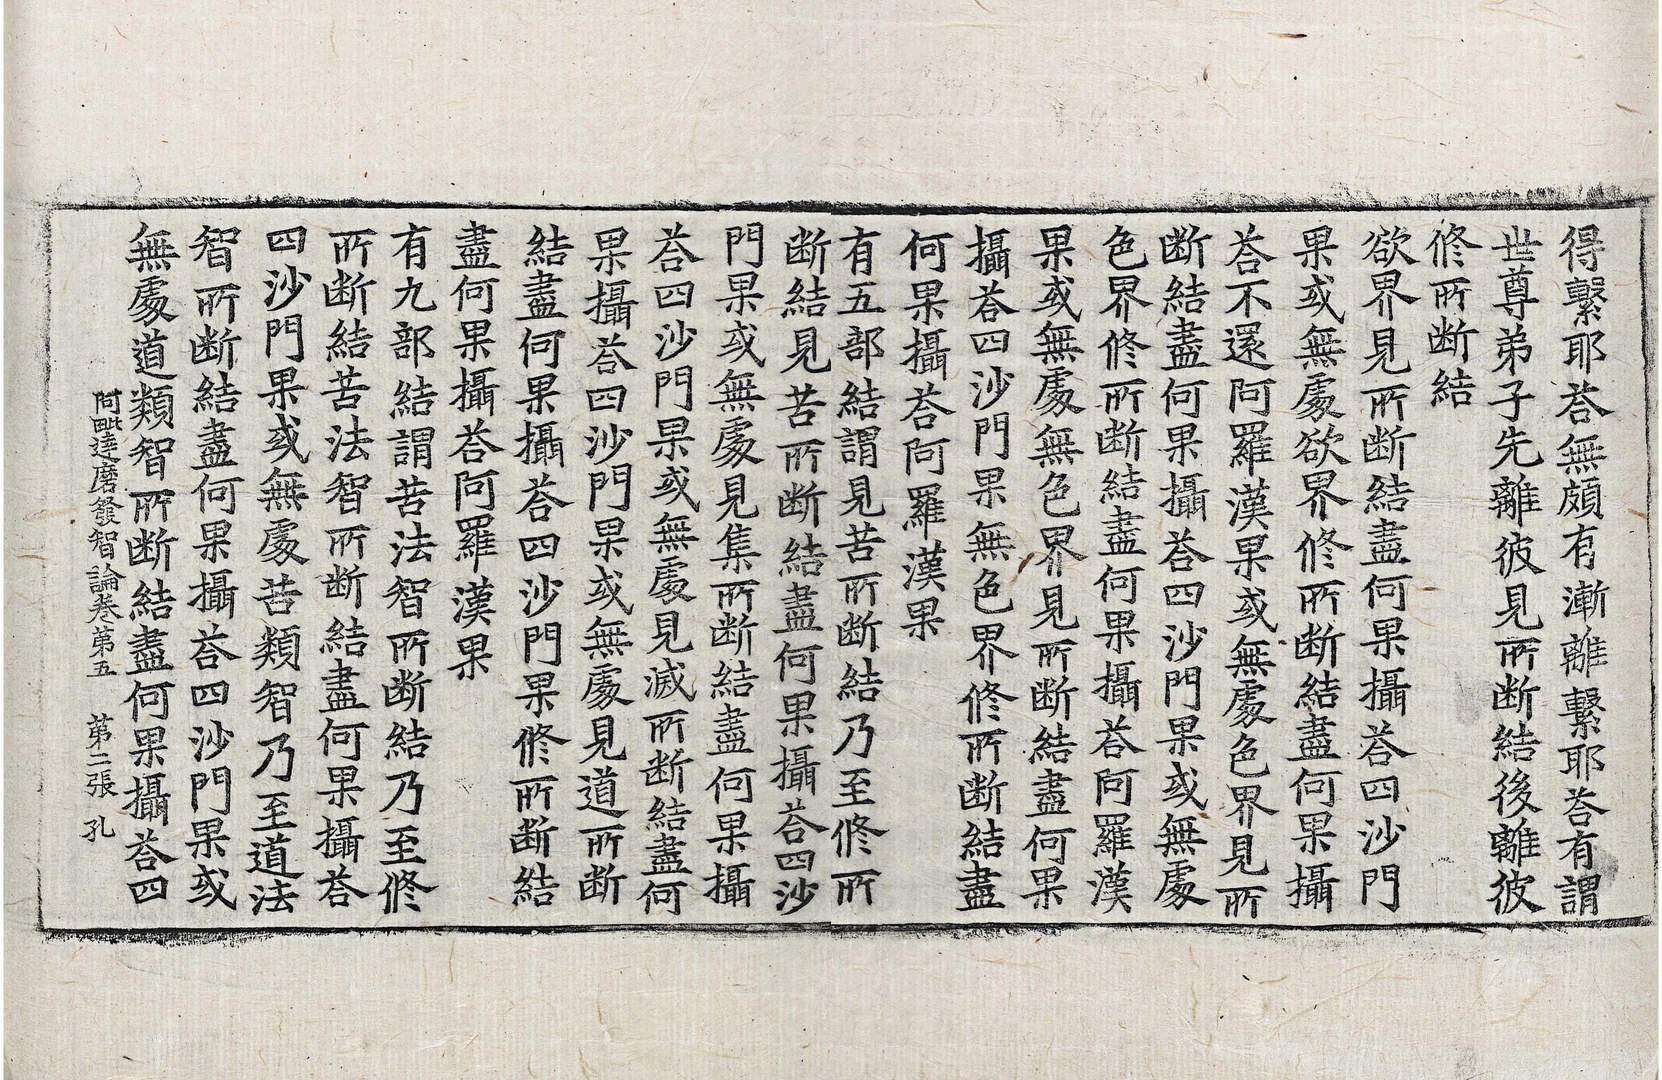 得繫耶荅無頗有漸離繫耶荅有謂
世尊弟子先離彼見所断結後離彼
修所断結
欲界見所断結盡何果攝荅四沙門
果或無處欲界修所断結盡何果攝
荅不還阿羅漢果或無處色界見所
断結盡何果攝荅四沙門果或無處
色界修所断結盡何果攝荅阿羅漢
果或無處無色界見所断結盡何果
攝荅四沙門果無色界修所断結盡
何果攝荅阿羅漢果
有五部結謂見苦所断結乃至修所
断結見苦所断結盡何果攝荅四沙
門果或無處見集所断結盡何果攝
荅四沙門果或無處見滅所断結盡何
果攝荅四沙門果或無處見道所断
結盡何果攝荅四沙門果修所断結
盡何果攝荅阿羅漢果
有九部結謂苦法智所断結乃至修
所断結苦法智所断結盡何果攝荅
四沙門果或無處苦類智乃至道法
智所断結盡何果攝荅四沙門果或
無處道類智所断結盡何果攝荅四
阿毗達磨發智論卷第五 第二張 孔